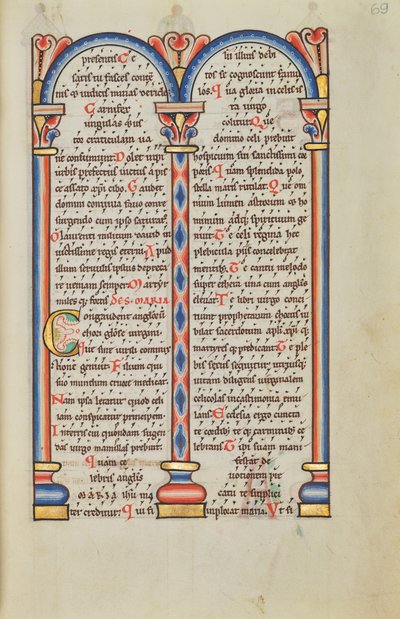 69
presenti. Ce
saris tu fasces conge
ries qꝫ iudicis minas derides
Carnifex
ungulas & us
tor craticulam ua
ne consumunt. Dolet impi
urbis prefectus uictus a pis
ce assato xpi cibo. Gaudet
domini conuiua fauo conre
surgendi cum ipso saturat
O laurenti militum dauid in
uictissime regis eterni. Apud
illum seruulis ipsius depreca
re ueniam semper. Martyr
miles qꝫ fortis. DE S. MARIA
Congaudent angelorū
chori gl̄ose uirgini
Que sine uirili commix
tione genuit. Filium qui
suo mundum cruore medicat.
Nam ipsa letatur quod celi
iam conspicatur principem.
In terris cui quondam sugen
das uirgo mamillas prebuit.
Quam ce
lebris anglis
MARIA ihu ma
ter creditur. Qui si
in illius debi
tos se cognoscunt famu
los. Qua gloria in celis is
ta uirgo
colitur. Que
domino celi prebuit
hospicium sui sanctissimi cor
poris. Quam splendida polo
stella maris rutilat. Que om
nium lumen astrorum & ho
minum atqꝫ spirituum ge
nuit. Te celi regina hec
plebicula piis concelebrat
mentibꝫ. Te cantu melodo
super ethera una cum anglis
eleuat. Te libri uirgo conci
nunt prophetarum chorus iu
bilat sacerdotum apli xpi qꝫ
martyres predicant. Te ple
bis sexus sequitur utriusqꝫ
uitam diligens uirginalem
celicolas in castimonia emu
lans. Ecclesia ergo cuncta
te cordibꝫ te qꝫ carminibꝫ ce
lebrans. Tibi suam mani
festat de
uotionem pre
catu te supplici
implorat maria. Ut si